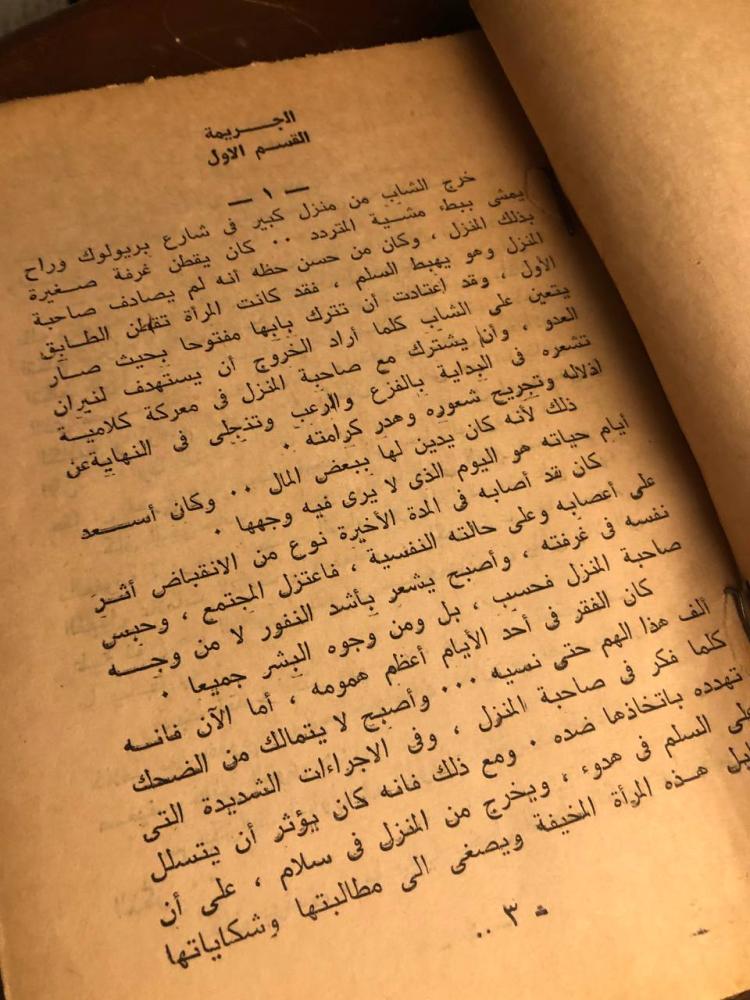 الجريمة
القسم الاول
— ١ —
خرج الشاب من منزل كبير فى شارع بريولوك وراح
يمشى ببطء مشية المتردد ٠٠ كان يقطن غرفة صغيرة
بذلك المنزل ، وكان من حسن حظه أنه لم يصادف صاحبة
المنزل وهو يهبط السلم ، فقد كانت المرأة تقطن الطابق
الأول ، وقد اعتادت أن تترك بابها مفتوحا بحيث صار
يتعين على الشاب كلما أراد الخروج أن يستهدف لنيران
العدو ، وأن يشترك مع صاحبة المنزل فى معركة كلامية
تشعره فى البداية بالفزع والرعب وتنجلى فى النهاية عن
اذلاله وتجريح شعوره وهدر كرامته ٠
ذلك لأنه كان يدين لها ببعض المال ٠٠ وكان أسعد
أيام حياته هو اليوم الذى لا يرى فيه وجهها ٠
كان قد أصابه فى المدة الأخيرة نوع من الانقباض أثر
على أعصابه وعلى حالته النفسية ، فاعتزل المجتمع ، وحبس
نفسه فى غرفته ، وأصبح يشعر بأشد النفور لا من وجه
صاحبة المنزل فحسب ، بل ومن وجوه البشر جميعا ٠
كان الفقر فى أحد الأيام أعظم همومه ، أما الآن فانه
ألف هذا الهم حتى نسيه ٠٠٠ وأصبح لا يتمالك من الضحك
كلما فكر فى صاحبة المنزل ، وفى الاجراءات الشديدة التى
تهدده باتخاذها ضده ٠ ومع ذلك فانه كان يؤثر أن يتسلل
على السلم فى هدوء ، ويخرج من المنزل فى سلام ، على أن
هذه المرأة المخيفة ويصغى الى مطالبتها وشكاياتها
٣ ..